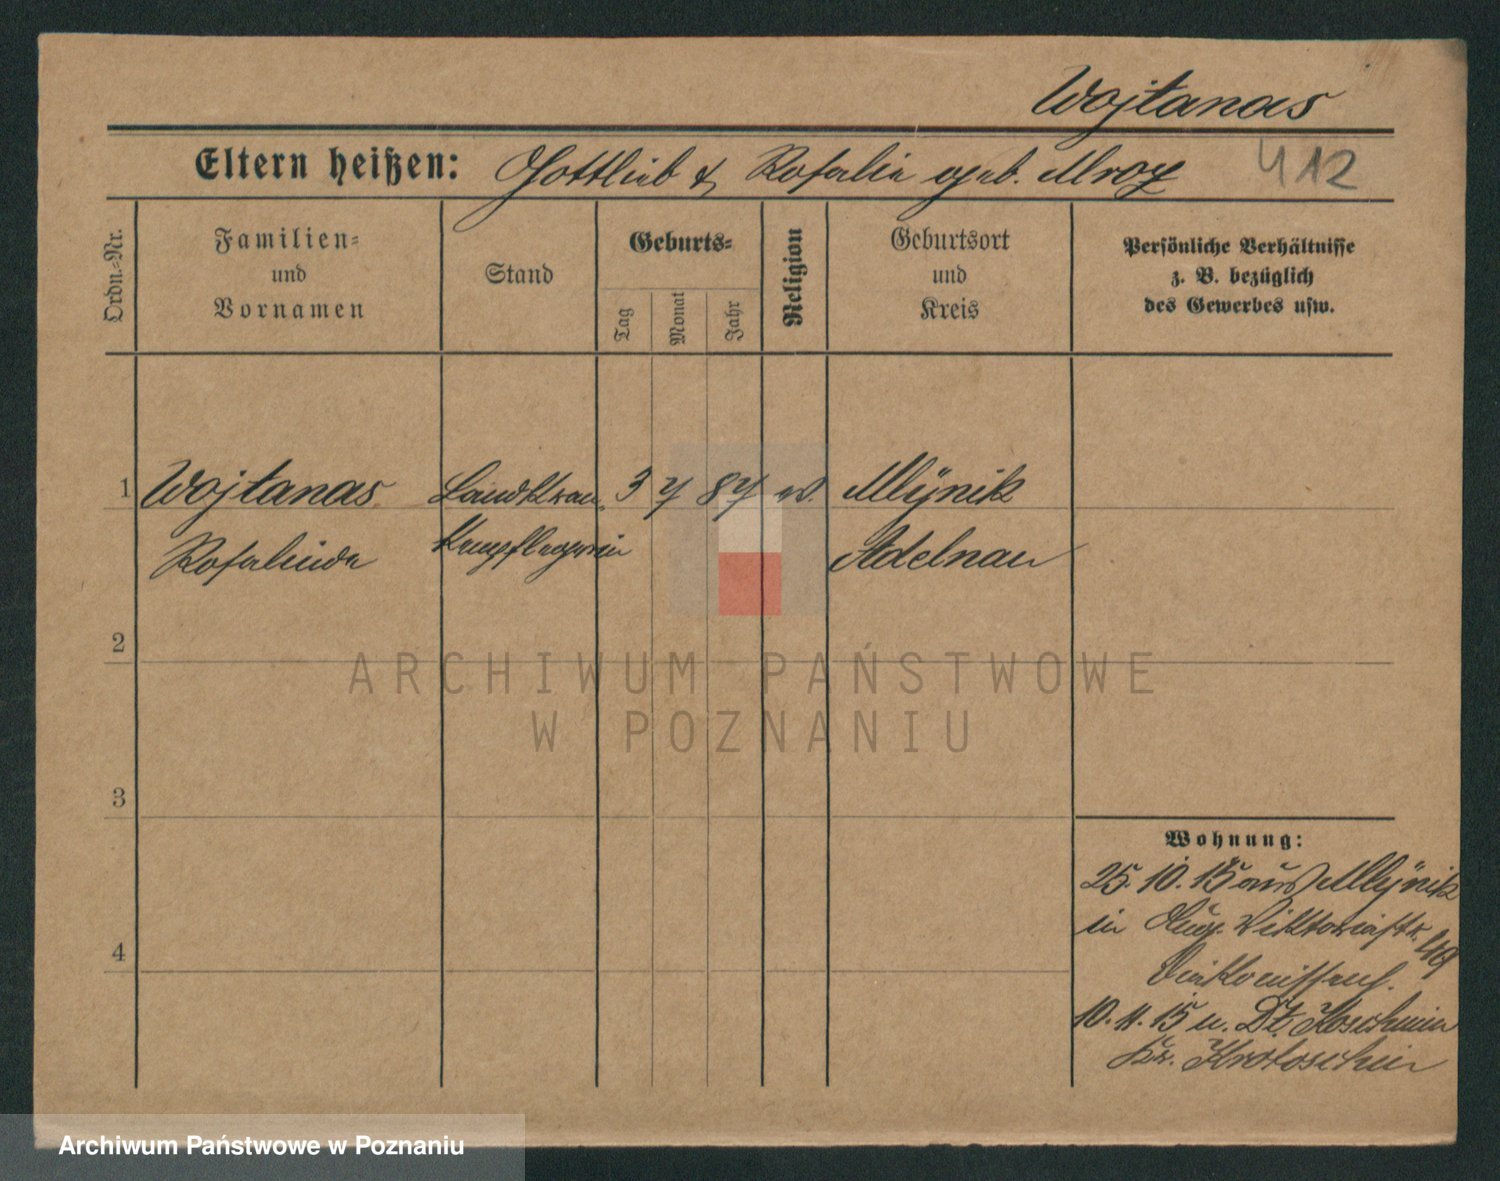 Wojtanas
Eltern heißen: Gottlieb & Rosalie geb. Mroz 412
Ordn.-Nr.
Familien- und Vornamen
Stand
Geburts-
Tag
Monat
Jahr
Religion
Geburtsort und Kreis
Persönliche Verhältnisse z. B. bezüglich des Gewerbes usw.
1 Wojtanas Landkran- 3 7 87 ev. Mlynik
Rosalinde kenpflegerin Adelnau
2
3
4
Wohnung:
25. 10. 15 aus Mlynik
in Aug. Viktoriastr. 
Diakonissenh.
10. 11. 15 n. Dt. Koschmin
Kr. Krotoschin
ARCHIWUM PAŃSTWOWE
W POZNANIU
Archiwum Państwowe w Poznaniu